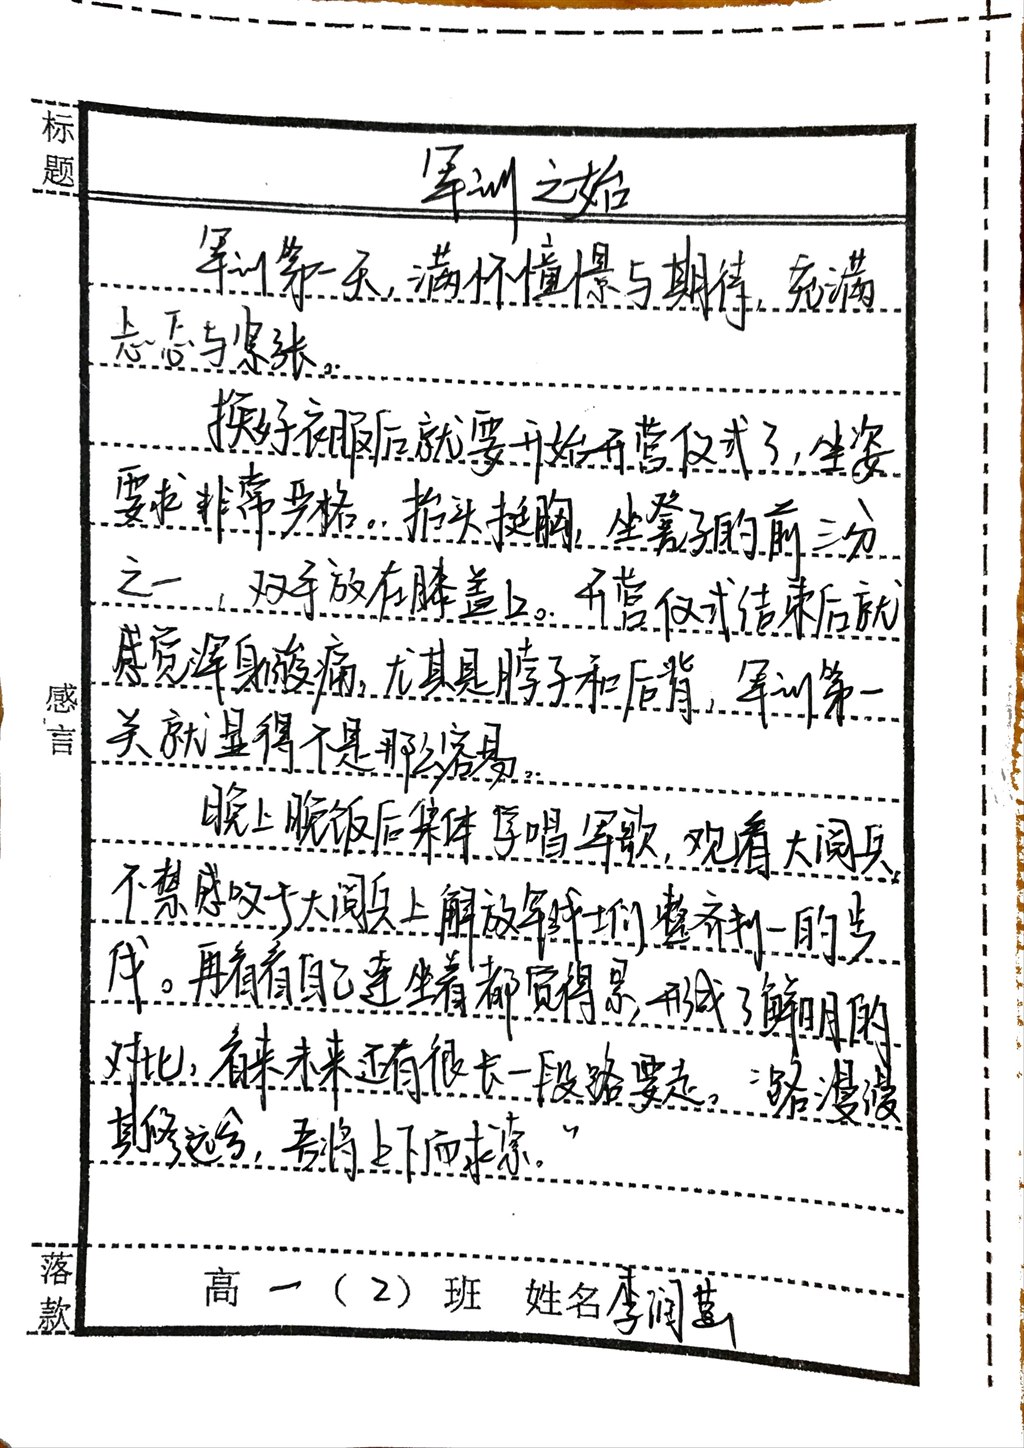 标题
军训之始
军训第一天，满怀憧憬与期待，充满
忐忑与紧张。
换好衣服后就要开始开营仪式了，坐姿
要求非常严格。抬头挺胸，坐凳子的前三分
之一，双手放在膝盖上。开营仪式结束后就
感觉浑身酸痛，尤其是脖子和后背，军训第一
关就显得不是那么容易。
感言
晚上晚饭后集体学唱军歌，观看大阅兵，
不禁感叹于大阅兵上解放军战士们整齐划一的步
伐。再看看自己连坐着都觉得累，形成了鲜明的
对比，看来未来还有很长一段路要走。“路漫漫
其修远兮，吾将上下而求索。”
落款
高一（2）班 姓名李润